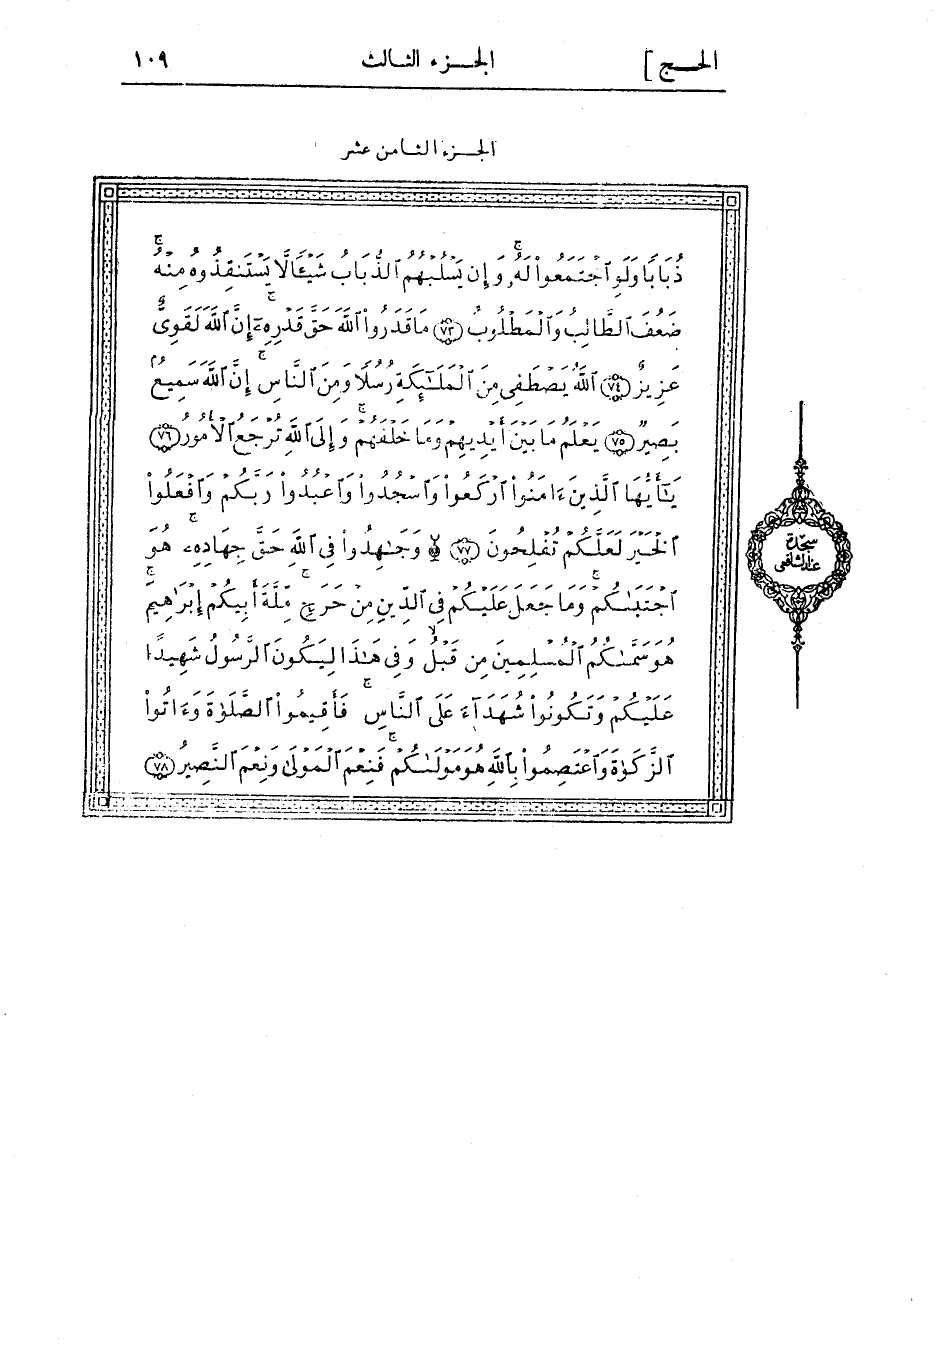 الحـج ]
الجـزء الثالث
١٠٩
الجـزء الثامن عشر
ذُبَابًا وَلَوِ ٱجْتَمَعُوا۟ لَهُۥ ۚ وَإِن يَسْلُبْهُمُ ٱلذُّبَابُ شَيْـًٔا لَّا يَسْتَنقِذُوهُ مِنْهُ ۚ
ضَعُفَ ٱلطَّالِبُ وَٱلْمَطْلُوبُ ٧٣ مَا قَدَرُوا۟ ٱللَّهَ حَقَّ قَدْرِهِۦٓ ۚ إِنَّ ٱللَّهَ لَقَوِىٌّ
عَزِيزٌ ٧٤ ٱللَّهُ يَصْطَفِى مِنَ ٱلْمَلَـٰٓئِكَةِ رُسُلًا وَمِنَ ٱلنَّاسِ ۚ إِنَّ ٱللَّهَ سَمِيعٌۢ
بَصِيرٌ ٧٥ يَعْلَمُ مَا بَيْنَ أَيْدِيهِمْ وَمَا خَلْفَهُمْ ۚ وَإِلَى ٱللَّهِ تُرْجَعُ ٱلْأُمُورُ ٧٦
يَـٰٓأَيُّهَا ٱلَّذِينَ ءَامَنُوا۟ ٱرْكَعُوا۟ وَٱسْجُدُوا۟ وَٱعْبُدُوا۟ رَبَّكُمْ وَٱفْعَلُوا۟
ٱلْخَيْرَ لَعَلَّكُمْ تُفْلِحُونَ ٧٧ ۩ وَجَـٰهِدُوا۟ فِى ٱللَّهِ حَقَّ جِهَادِهِۦ ۚ هُوَ
ٱجْتَبَىٰكُمْ ۚ وَمَا جَعَلَ عَلَيْكُمْ فِى ٱلدِّينِ مِنْ حَرَجٍ ۚ مِّلَّةَ أَبِيكُمْ إِبْرَٰهِيمَ ۚ
هُوَ سَمَّىٰكُمُ ٱلْمُسْلِمِينَ مِن قَبْلُ ۙ وَفِى هَـٰذَا لِيَكُونَ ٱلرَّسُولُ شَهِيدًا
عَلَيْكُمْ وَتَكُونُوا۟ شُهَدَآءَ عَلَى ٱلنَّاسِ ۚ فَأَقِيمُوا۟ ٱلصَّلَوٰةَ وَءَاتُوا۟
ٱلزَّكَوٰةَ وَٱعْتَصِمُوا۟ بِٱللَّهِ هُوَ مَوْلَىٰكُمْ ۚ فَنِعْمَ ٱلْمَوْلَىٰ وَنِعْمَ ٱلنَّصِيرُ ٧٨
سجدة
عند الشافعي